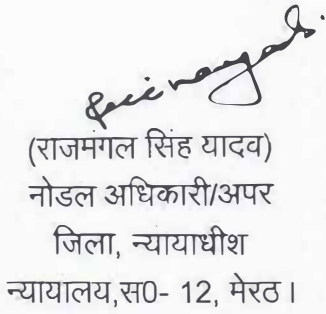 (राजमंगल सिंह यादव)
नोडल अधिकारी/अपर
जिला, न्यायाधीश
न्यायालय,स0- 12, मेरठ।